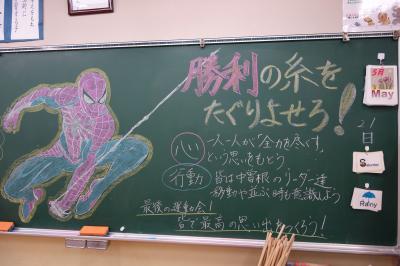 勝利の糸を
たぐりよせろ!
心
一人一人が「全力を尽くす」
という思いをもとう
行動
皆は中曽根のリーダー達
移動や並ぶ時も意識しよう
最後の運動会!
皆で最高の思い出をつくろう!
5月
May
21
日
Rainy